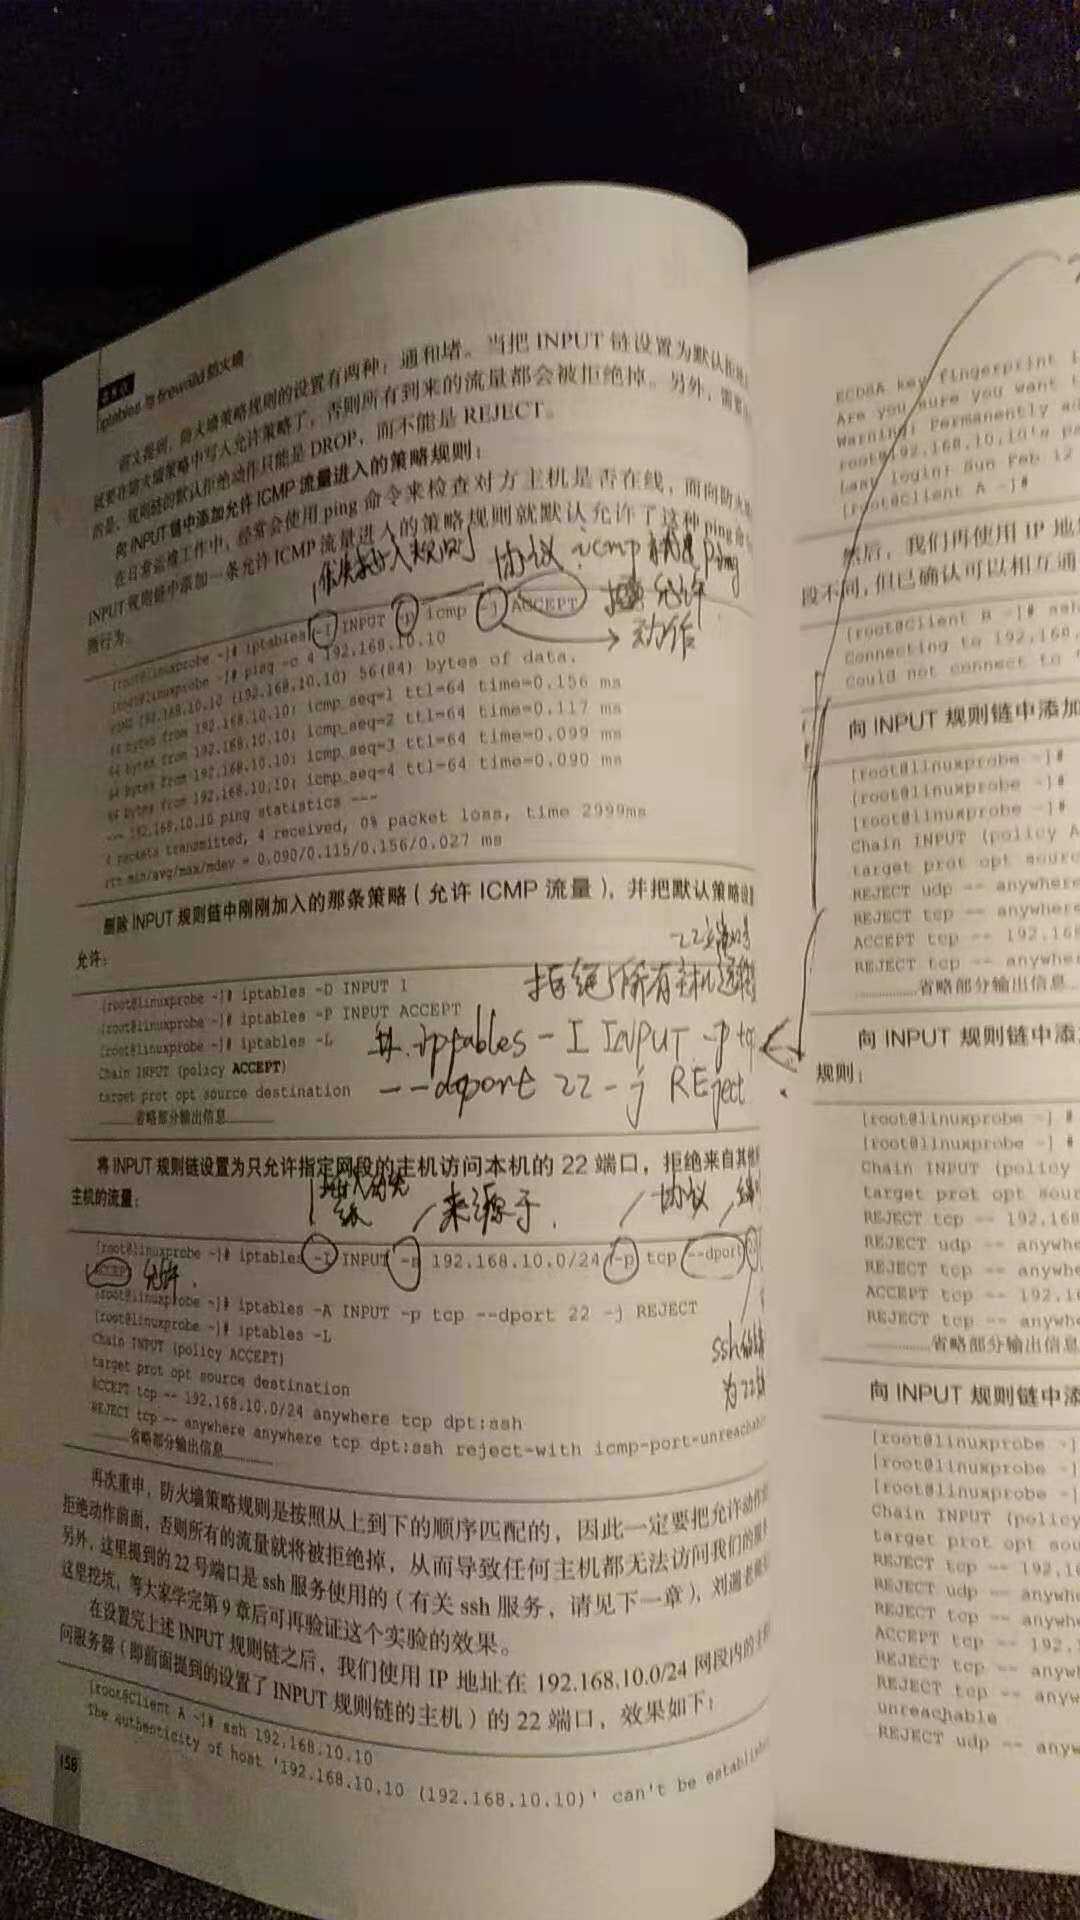 iptables 与 firewalld 防火墙
前文提到，防火墙策略规则的设置有两种：通和堵。当把 INPUT 链设置为默认拒绝
就要在防火墙策略中写入允许策略了，否则所有到来的流量都会被拒绝掉。另外，需要
的是，规则链的默认拒绝动作只能是 DROP，而不能是 REJECT。
向 INPUT 链中添加允许 ICMP 流量进入的策略规则：
在日常运维工作中，经常会使用 ping 命令来检查对方主机是否在线，而向防火墙
INPUT 规则链中添加一条允许 ICMP 流量进入的策略规则就默认允许了这种 ping 命令
测行为。
插入规则 协议:icmp ping
允许
动作
[root@linuxprobe ~]# iptables -I INPUT -p icmp -j ACCEPT
[root@linuxprobe ~]# ping -c 4 192.168.10.10
PING 192.168.10.10 (192.168.10.10) 56(84) bytes of data.
64 bytes from 192.168.10.10: icmp_seq=1 ttl=64 time=0.156 ms
64 bytes from 192.168.10.10: icmp_seq=2 ttl=64 time=0.117 ms
64 bytes from 192.168.10.10: icmp_seq=3 ttl=64 time=0.099 ms
64 bytes from 192.168.10.10: icmp_seq=4 ttl=64 time=0.090 ms
--- 192.168.10.10 ping statistics ---
4 packets transmitted, 4 received, 0% packet loss, time 2999ms
rtt min/avg/max/mdev = 0.090/0.115/0.156/0.027 ms
删除 INPUT 规则链中刚刚加入的那条策略（允许 ICMP 流量），并把默认策略设
允许：
22端口
拒绝所有主机远程
[root@linuxprobe ~]# iptables -D INPUT 1
[root@linuxprobe ~]# iptables -P INPUT ACCEPT
[root@linuxprobe ~]# iptables -L
Chain INPUT (policy ACCEPT)
target prot opt source destination
………省略部分输出信息………
#. iptables -I INPUT -p tcp
--dport 22 -j REject
将 INPUT 规则链设置为只允许指定网段的主机访问本机的 22 端口，拒绝来自其他所
主机的流量：
来源于. 协议
[root@linuxprobe ~]# iptables -I INPUT -s 192.168.10.0/24 -p tcp --dport 22
ACCEPT 允许.
[root@linuxprobe ~]# iptables -A INPUT -p tcp --dport 22 -j REJECT
[root@linuxprobe ~]# iptables -L
Chain INPUT (policy ACCEPT)
target prot opt source destination
ACCEPT tcp -- 192.168.10.0/24 anywhere tcp dpt:ssh
REJECT tcp -- anywhere anywhere tcp dpt:ssh reject-with icmp-port-unreachable
………省略部分输出信息………
ssh
为22
再次重申，防火墙策略规则是按照从上到下的顺序匹配的，因此一定要把允许动作放
拒绝动作前面，否则所有的流量就将被拒绝掉，从而导致任何主机都无法访问我们的服务
另外，这里提到的 22 号端口是 ssh 服务使用的（有关 ssh 服务，请见下一章），刘遄老师
这里挖坑，等大家学完第 9 章后可再验证这个实验的效果。
在设置完上述 INPUT 规则链之后，我们使用 IP 地址在 192.168.10.0/24 网段内的主机
问服务器（即前面提到的设置了 INPUT 规则链的主机）的 22 端口，效果如下：
[root@Client A ~]# ssh 192.168.10.10
The authenticity of host '192.168.10.10 (192.168.10.10)' can't be established
158
ECDSA key fingerprint i
Are you sure you want t
Warning: Permanently ad
root@192.168.10.10's pa
Last login: Sun Feb 12
[root@Client A ~]#
然后，我们再使用 IP 地
段不同，但已确认可以相互通
[root@Client B ~]# ssh
Connecting to 192.168.
Could not connect to
向 INPUT 规则链中添加
[root@linuxprobe ~]#
[root@linuxprobe ~]#
[root@linuxprobe ~]#
Chain INPUT (policy A
target prot opt sourc
REJECT udp -- anywhere
REJECT tcp -- anywhere
ACCEPT tcp -- 192.168
REJECT tcp -- anywhere
………省略部分输出信息…
向 INPUT 规则链中添
规则：
[root@linuxprobe ~] #
[root@linuxprobe ~] #
Chain INPUT (policy
target prot opt sour
REJECT tcp -- 192.168
REJECT udp -- anywhe
REJECT tcp -- anywhe
ACCEPT tcp -- 192.1
REJECT tcp -- anywhe
………省略部分输出信息
向 INPUT 规则链中添
[root@linuxprobe ~]
[root@linuxprobe ~]
[root@linuxprobe ~]
Chain INPUT (policy
target prot opt sou
REJECT tcp -- 192.1
REJECT udp -- anywh
REJECT tcp -- anywh
ACCEPT tcp -- 192.
REJECT tcp -- anyw
REJECT tcp -- anyw
unreachable
REJECT udp -- anyw